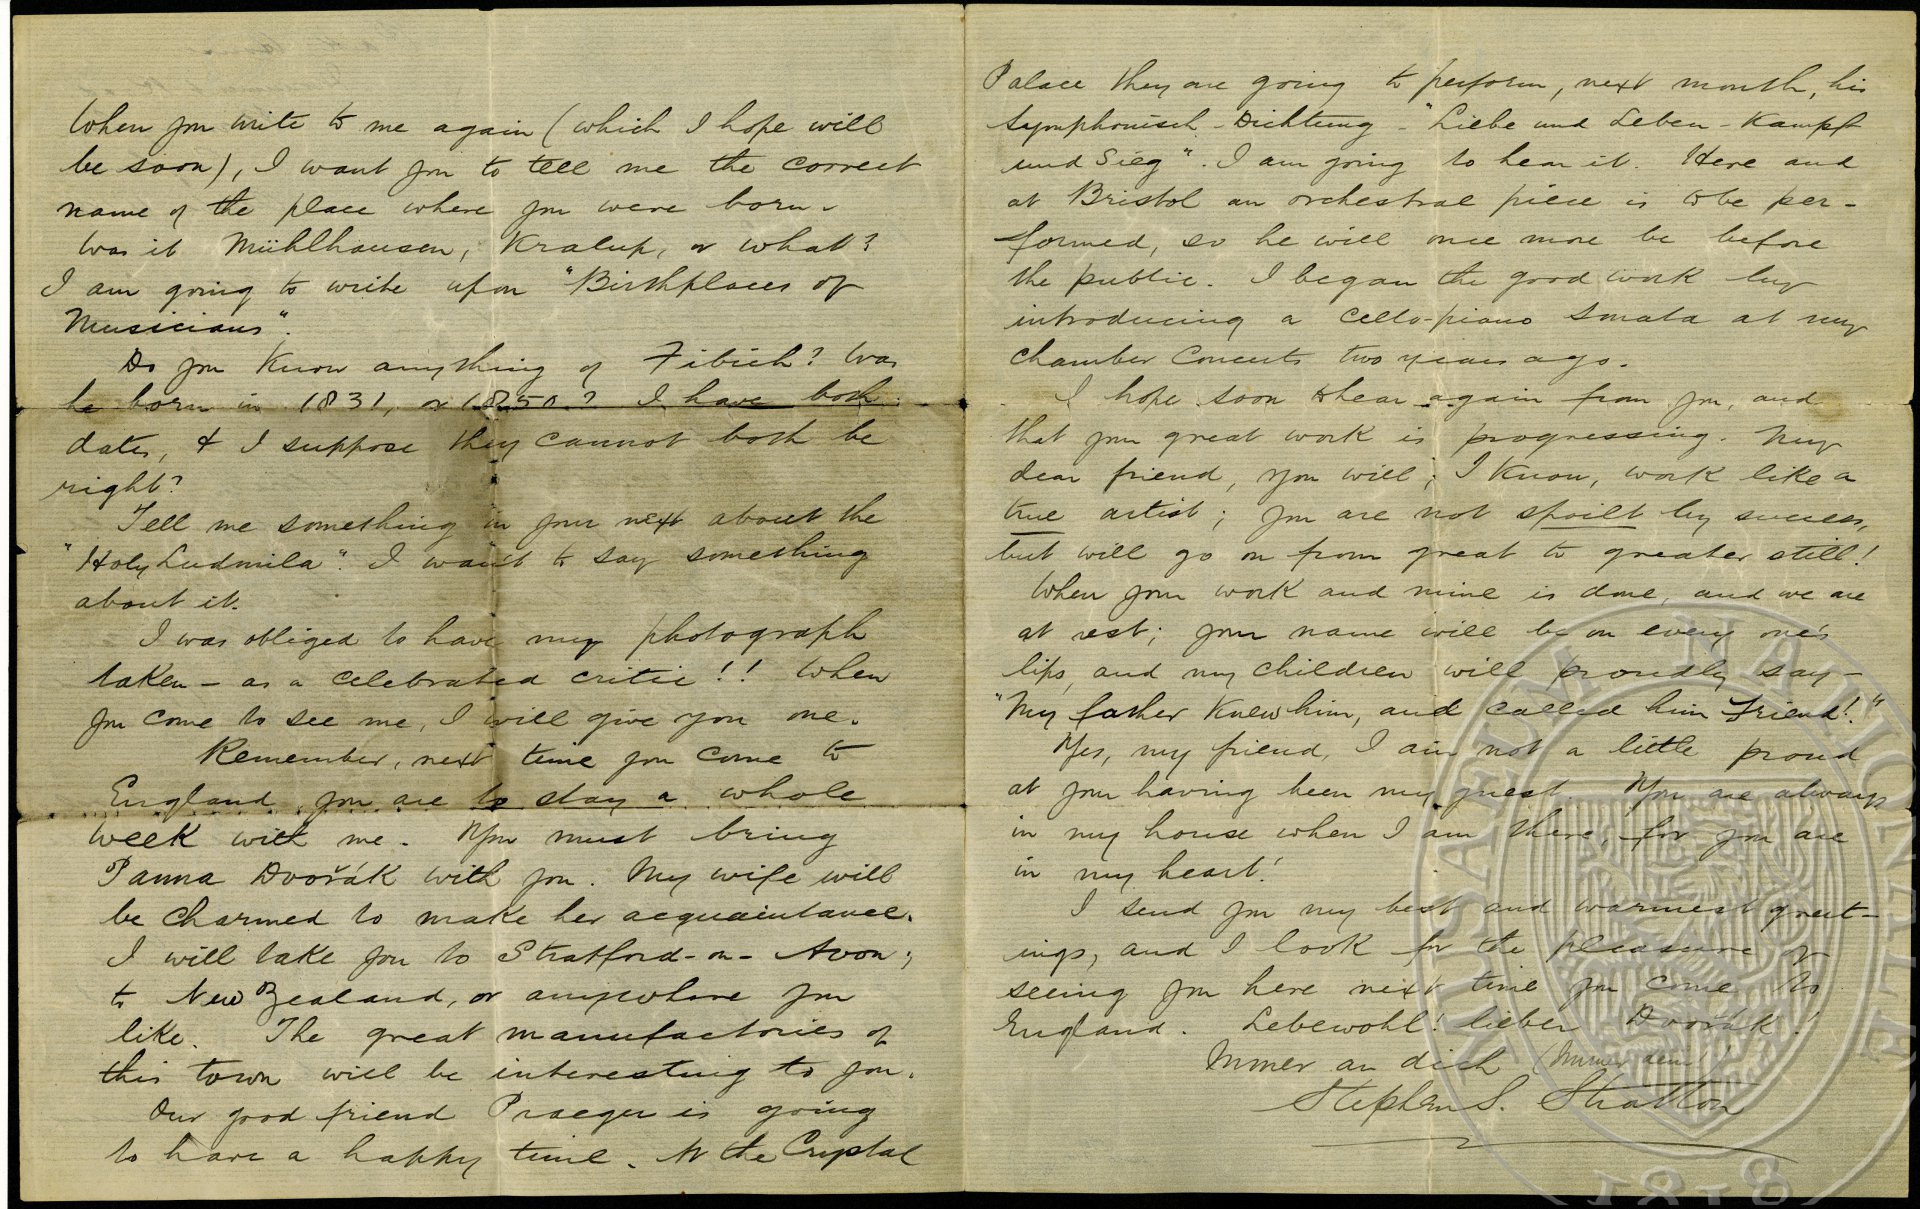 When you write to me again (which I hope will
be soon), I want you to tell me the correct
name of the place where you were born.
Was it Mühlhausen, Kralup, or what?
I am going to write upon "Birthplaces of
Musicians".
Do you know anything of Fibich? Was
he born in 1831, or 1850? I have both
dates, & I suppose they cannot both be
right?
Tell me something in your next about the
"Holy Ludmila". I want to say something
about it.
I was obliged to have my photograph
taken – as a celebrated critic!! When
you come to see me, I will give you one.
Remember, next time you come to
England, you are to stay a whole
week with me. You must bring
Panna Dvořák with you. My wife will
be charmed to make her acquaintance.
I will take you to Stratford-on-Avon;
to New Zealand, or anywhere you
like. The great manufactories of
this town will be interesting to you.
Our good friend Praeger is going
to have a happy time. At the Crystal
Palace they are going to perform, next month, his
Symphonisch-Dichtung - "Liebe und Leben - Kampf
und Sieg". I am going to hear it. Here and
at Bristol an orchestral piece is to be per-
formed, so he will once more be before
the public. I began the good work by
introducing a cello-piano Sonata at my
Chamber Concerts two years ago.
I hope soon to hear again from you, and
that your great work is progressing. My
dear friend, you will, I know, work like a
true artist; you are not spoilt by success,
but will go on from great to greater still!
When your work and mine is done, and we are
at rest; your name will be on every one's
lips, and my children will proudly say –
"My father knew him, and called him Friend!"
Yes, my friend, I am not a little proud
at your having been my guest. You are always
in my house when I am there, for you are
in my heart!
I send you my best and warmest greet-
ings, and I look for the pleasure of
seeing you here next time you come to
England. Lebewohl! lieber Dvořák!
Immer an dich (Immer dein!)
Stephen S. Stratton
MUSAEUM NATIONALE
1818